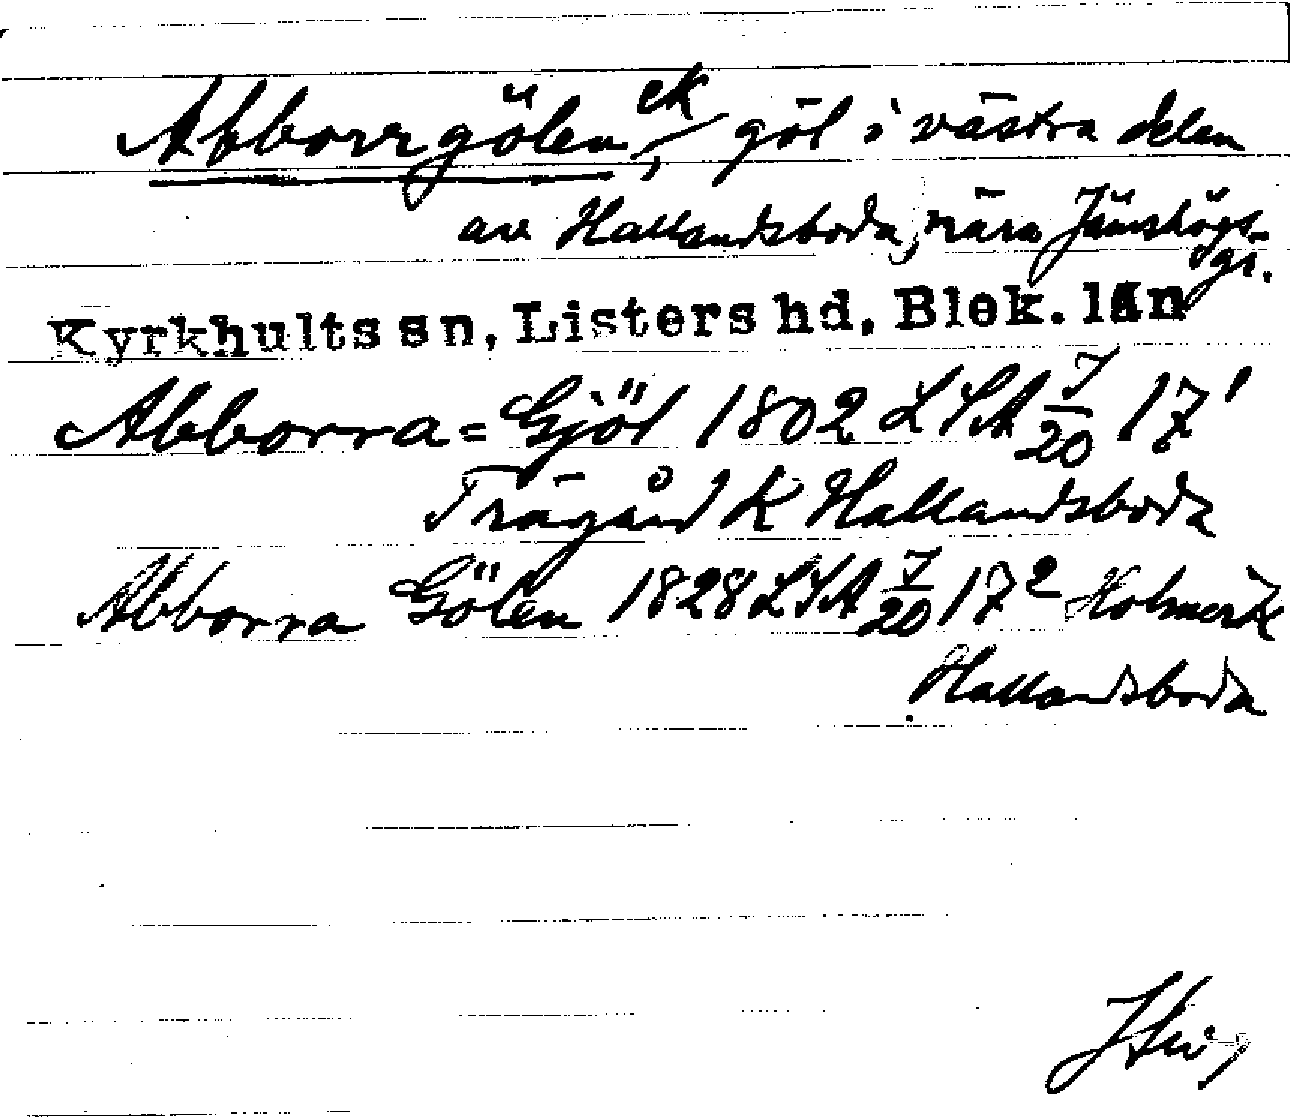 Abborrgölen ek, göl i västra delen
av Hallandsboda, nära Jämshögs-
gr.
Kyrkhults sn, Listers hd, Blek. län
Abborra=Gjöl 1802 LSA 7/20 17¹
Trägård K Hallandsboda
Abborra Gölen 1828 LSA 7/20 17² Holmark
Hallandsboda